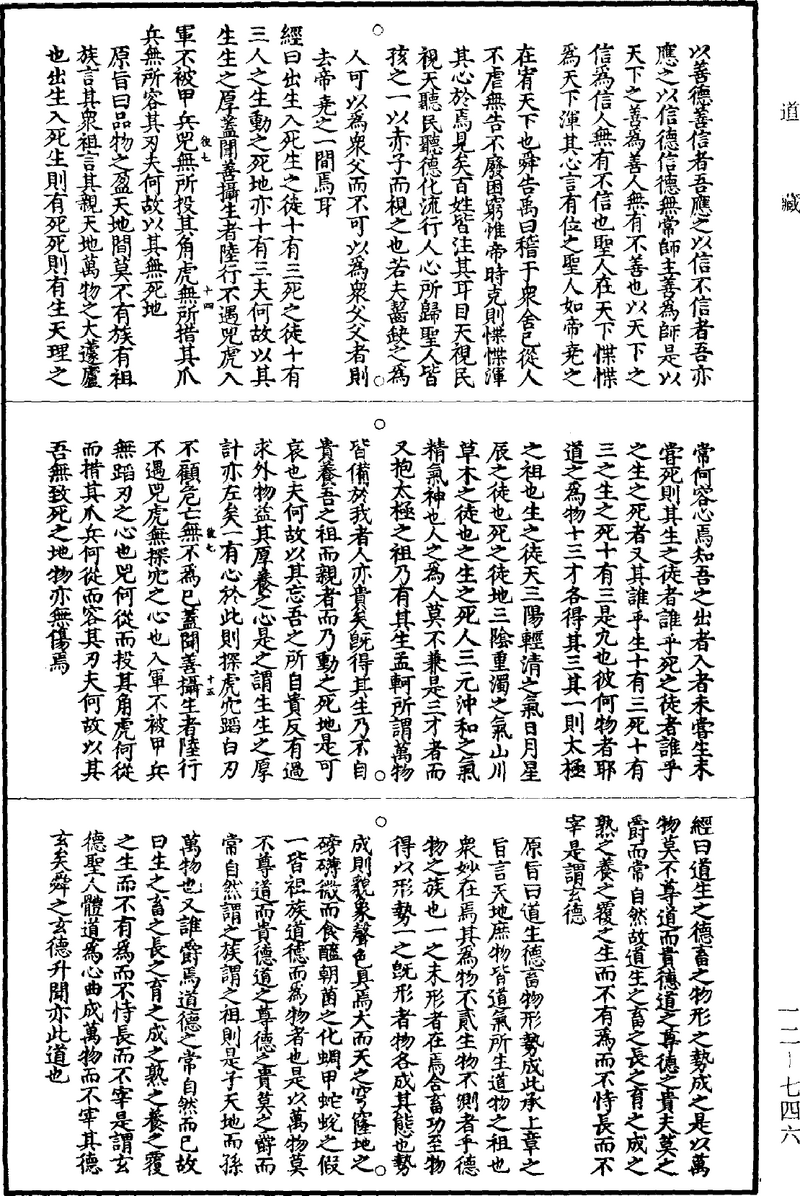 道藏
以善德善信者吾應之以信不信者吾亦
應之以信德信德無常師主善為師是以
天下之善為善人無有不善也以天下之
信為信人無有不信也聖人在天下惵惵
為天下渾其心言有位之聖人如帝堯之
在宥天下也舜告禹曰稽于衆舍己從人
不虐無告不廢困窮惟帝時克則惵惵渾
其心於焉見矣百姓皆注其耳目天視民
視天聽民聽德化流行人心所歸聖人皆
孩之一以赤子而視之也若夫齧缺之為
人可以為衆父而不可以為衆父父者則
去帝堯之一間焉耳
經曰出生入死生之徒十有三死之徒十有
三人之生動之死地亦十有三夫何故以其
生生之厚蓋聞善攝生者陸行不遇兕虎入
軍不被甲兵兕無所投其角虎無所措其爪
後七
十四
兵無所容其刃夫何故以其無死地
原旨曰品物之盈天地間莫不有族有祖
族言其衆祖言其親天地萬物之大蘧廬
也出生入死生則有死死則有生天理之
常何容心焉知吾之出者入者未嘗生未
嘗死則其生之徒者誰乎死之徒者誰乎
之生之死者又其誰乎生十有三死十有
三之生之死十有三是九也彼何物者耶
道之為物十三才各得其三其一則太極
之祖也生之徒天三陽輕清之氣日月星
辰之徒也死之徒地三陰重濁之氣山川
草木之徒也之生之死人三元沖和之氣
精氣神也人之為人莫不兼是三才者而
又抱太極之祖乃有其生孟軻所謂萬物
皆備於我者人亦貴矣旣得其生乃不自
貴養吾之祖而親者而乃動之死地是可
哀也夫何故以其忘吾之所自貴反有過
求外物益其厚養之心是之謂生生之厚
計亦左矣一有心於此則探虎穴蹈白刃
後七
十五
不顧危亡無不為已蓋聞善攝生者陸行
不遇兕虎無探穴之心也入軍不被甲兵
無蹈刃之心也兕何從而投其角虎何從
而措其爪兵何從而容其刃夫何故以其
吾無致死之地物亦無傷焉
經曰道生之德畜之物形之勢成之是以萬
物莫不尊道而貴德道之尊德之貴夫莫之
爵而常自然故道生之畜之長之育之成之
熟之養之覆之生而不有為而不恃長而不
宰是謂玄德
原旨曰道生德畜物形勢成此承上章之
旨言天地庶物皆道氣所生道物之祖也
衆妙在焉其為物不貳生物不測者乎德
物之族也一之未形者在焉含畜功至物
得以形勢一之旣形者物各成其態也勢
成則貌象聲色具焉大而天之穹窿地之
磅礴微而食醯朝菌之化蜩甲蛇蛻之假
一皆祖族道德而為物者也是以萬物莫
不尊道而貴德道之尊德之貴莫之爵而
常自然謂之族謂之祖則是子天地而孫
萬物也又誰爵焉道德之常自然而已故
曰生之畜之長之育之成之熟之養之覆
之生而不有為而不恃長而不宰是謂玄
德聖人體道為心曲成萬物而不宰其德
玄矣舜之玄德升聞亦此道也
一二－七四六